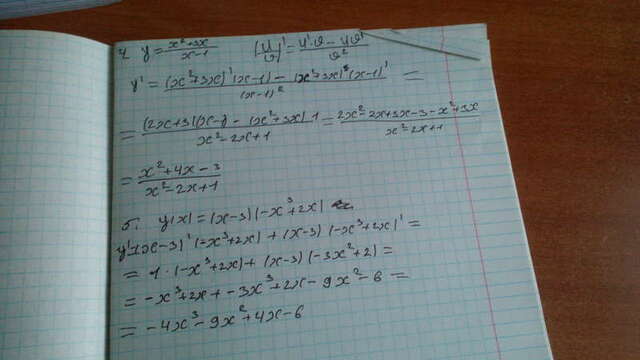 4. y = (x²+3x)/(x-1) (u/v)' = (u'v - uv')/v²
y' = ((x²+3x)'(x-1) - (x²+3x)(x-1)')/(x-1)² =
= ((2x+3)(x-1) - (x²+3x)·1)/(x²-2x+1) = (2x²-2x+3x-3-x²+3x)/(x²-2x+1)
= (x²+4x-3)/(x²-2x+1)
5. y(x) = (x-3)(-x³+2x)
y' = (x-3)'(-x³+2x) + (x-3)(-x³+2x)' =
= 1·(-x³+2x) + (x-3)(-3x²+2) =
= -x³+2x+-3x³+2x-9x²-6 =
= -4x³-9x²+4x-6